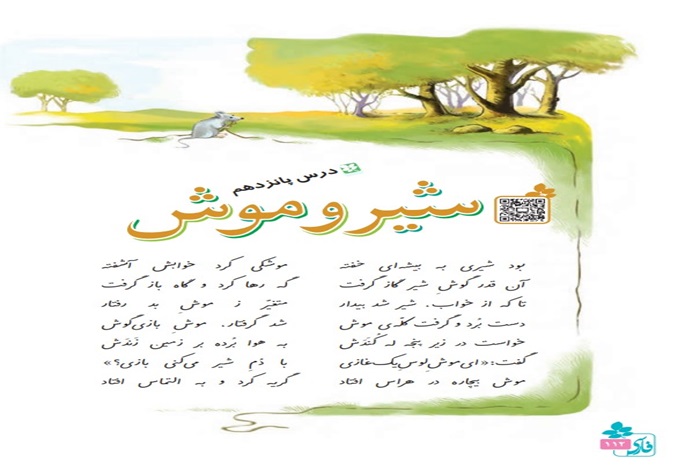 درس پانزدهم
شیر و موش
بود شیری به بیشه‌ای خفته موشکی کرد خوابش آشفته
آن قدر گوشِ شیر گاز گرفت گه رها کرد و گاه باز گرفت
تا که از خواب. شیر شد بیدار متغیّر ز موشِ بد رفتار
دست بُرد و گرفت کلّه‌ی موش شد گرفتار. موشِ بازی‌گوش
خواست در زیر پنجه لِه کُندَش به هوا بُرده بر زمین زَنَدَش
گفت: «ای موشِ لوسِ یک غازی با دُمِ شیر می‌کنی بازی؟»
موشِ بیچاره در هراس افتاد گریه کرد و به التماس افتاد
فارسی
۱۱۳